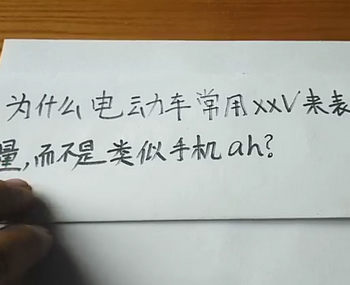 为什么电动车常用xxV来表
量,而不是类似手机ah?